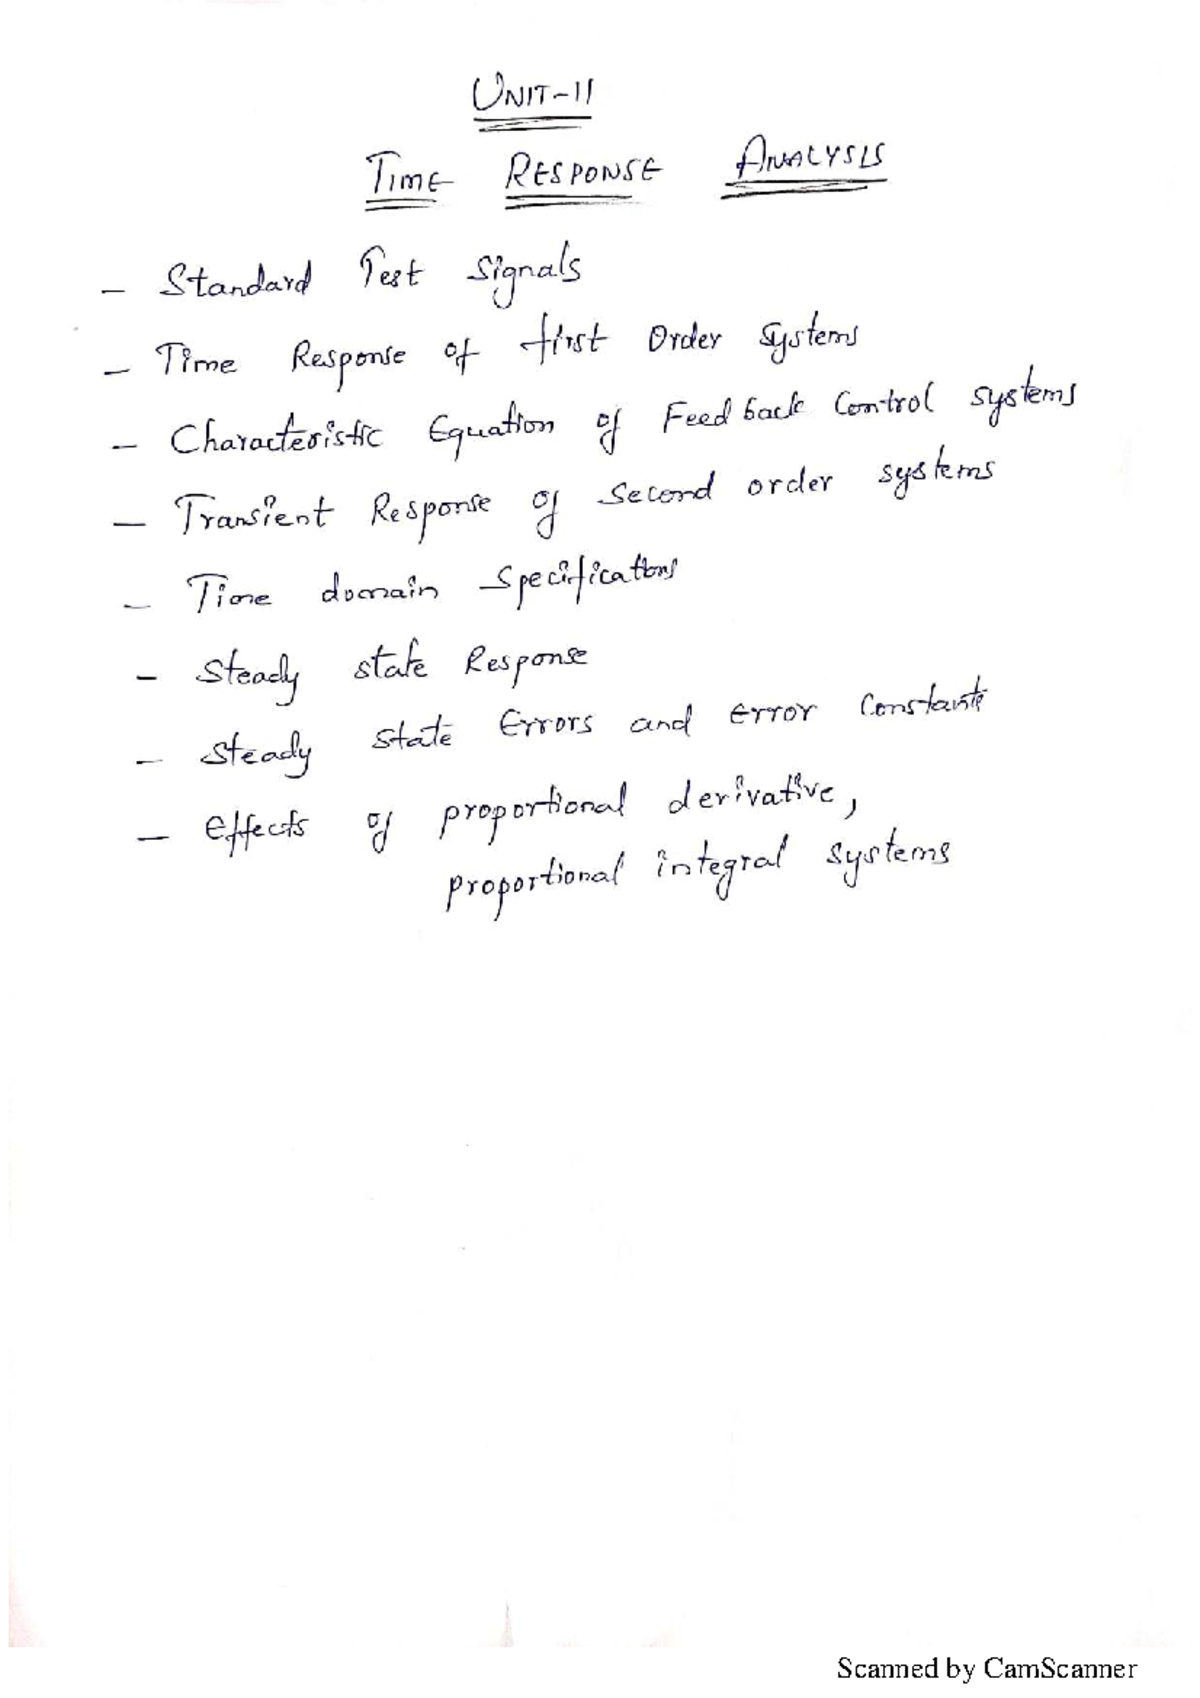 UNIT-II
TIME RESPONSE ANALYSIS
- Standard Test Signals
- Time Response of first Order Systems
- Characteristic Equation of Feedback Control systems
- Transient Response of Second order systems
- Time domain Specifications
- Steady state Response
- Steady state Errors and error Constants
- Effects of proportional derivative,
proportional integral systems
Scanned by CamScanner